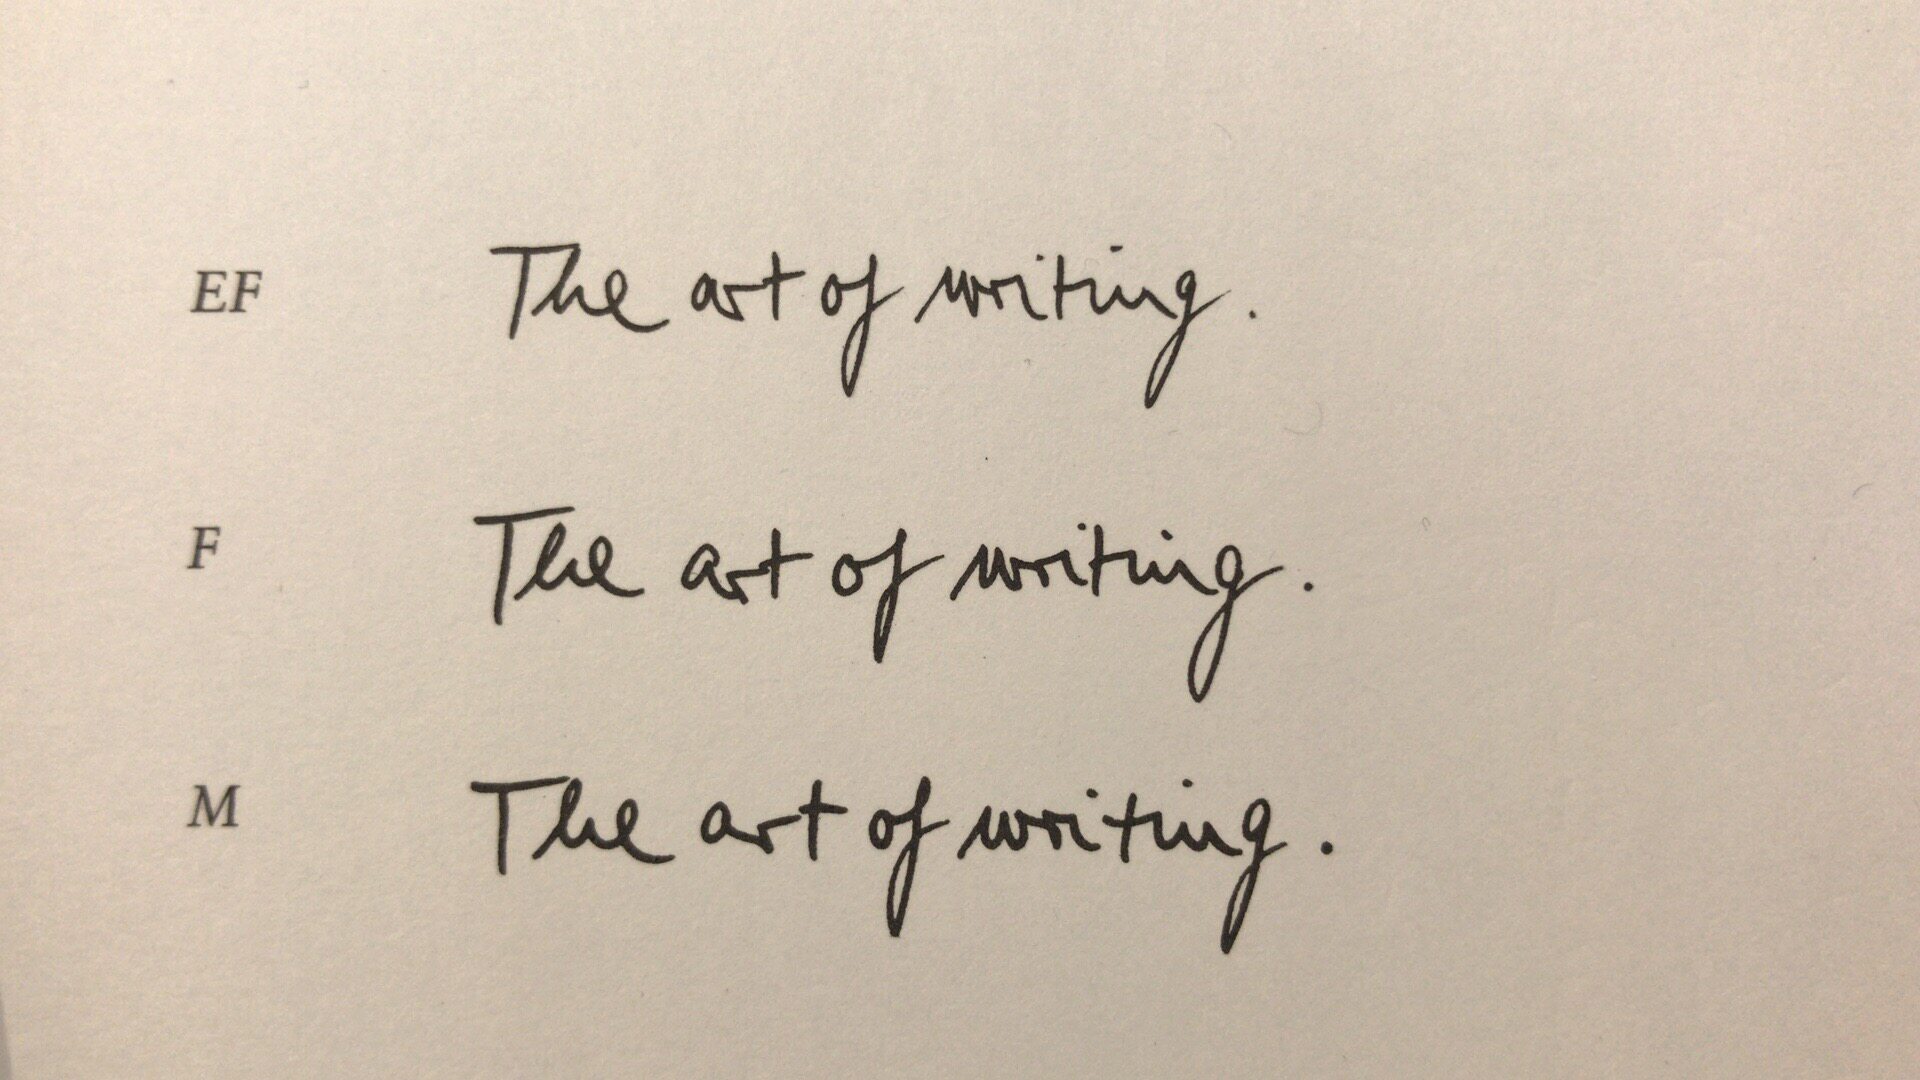 EF The art of writing.
F The art of writing.
M The art of writing.